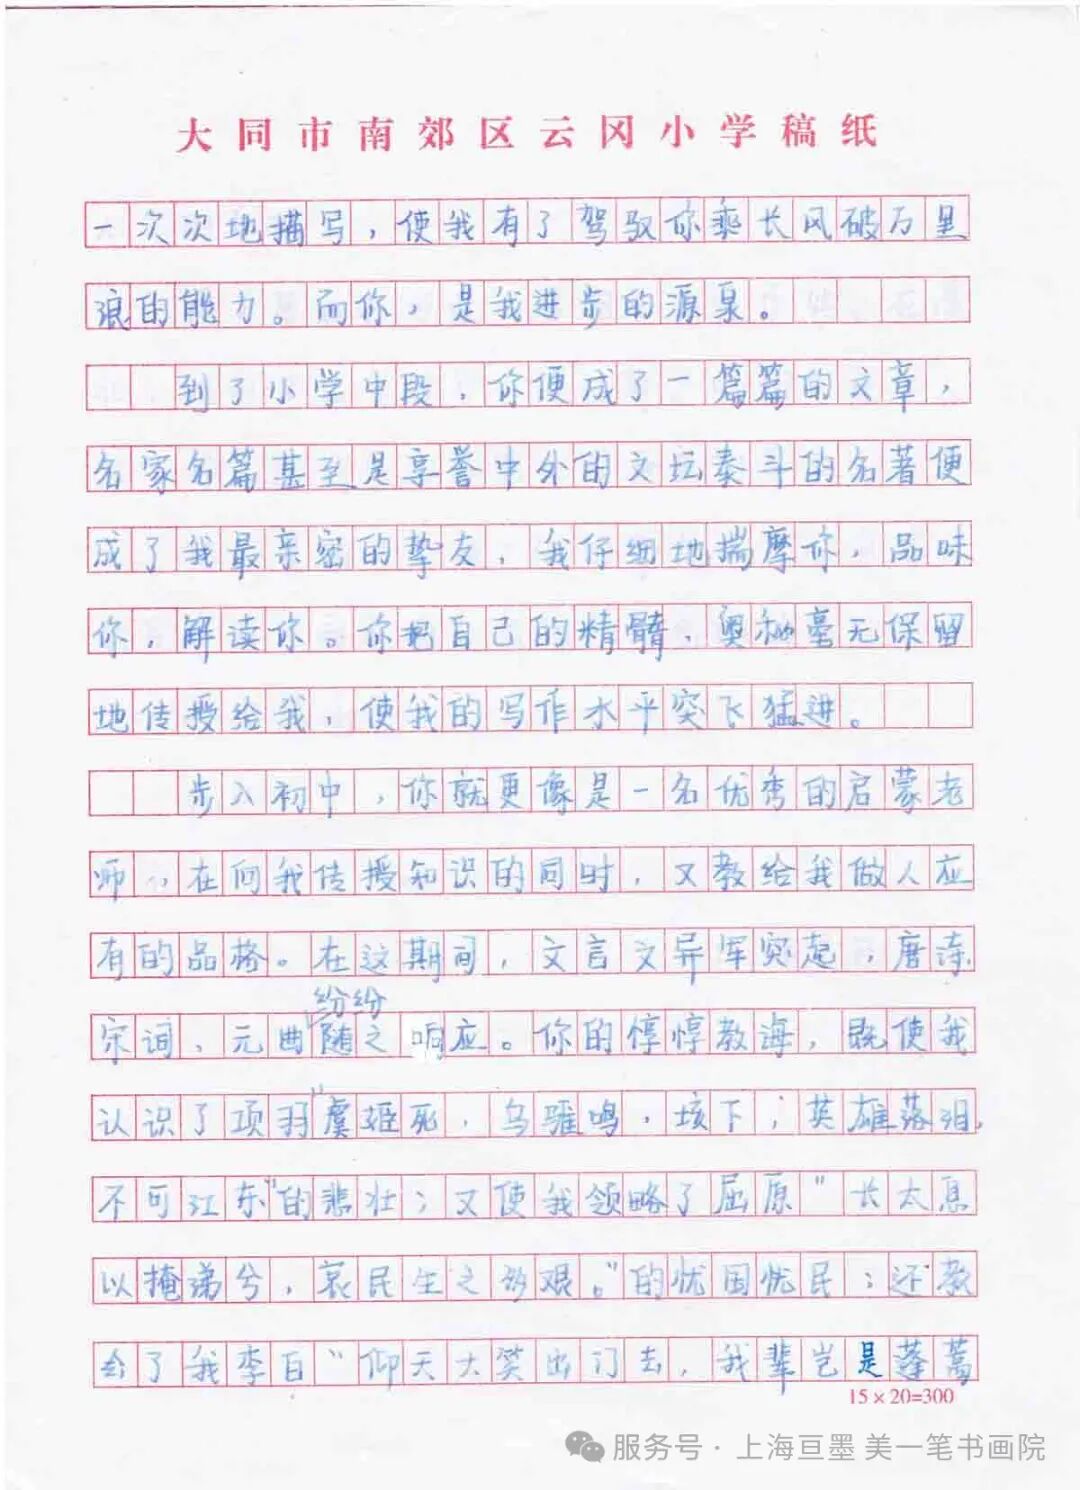 大同市南郊区云冈小学稿纸
一次次地描写，使我有了驾驭你乘长风破万里
浪的能力。而你，是我进步的源泉。
到了小学中段，你便成了一篇篇的文章，
名家名篇甚至是享誉中外的文坛泰斗的名著便
成了我最亲密的挚友，我仔细地揣摩你，品味
你，解读你。你把自己的精髓、奥秘毫无保留
地传授给我，使我的写作水平突飞猛进。
步入初中，你就更像是一名优秀的启蒙老
师，在向我传授知识的同时，又教给我做人应
有的品格。在这期间，文言文异军突起，唐诗
宋词、元曲纷纷随之响应。你的惇惇教海，既使我
认识了项羽“虞姬死，乌骓鸣，垓下；英雄落泪，
不可江东”的悲壮；又使我领略了屈原“长太息
以掩涕兮，哀民生之多艰。”的忧国忧民；还教
会了我李白“仰天大笑出门去，我辈岂是蓬蒿
15×20=300
服务号·上海亘墨 美一笔书画院